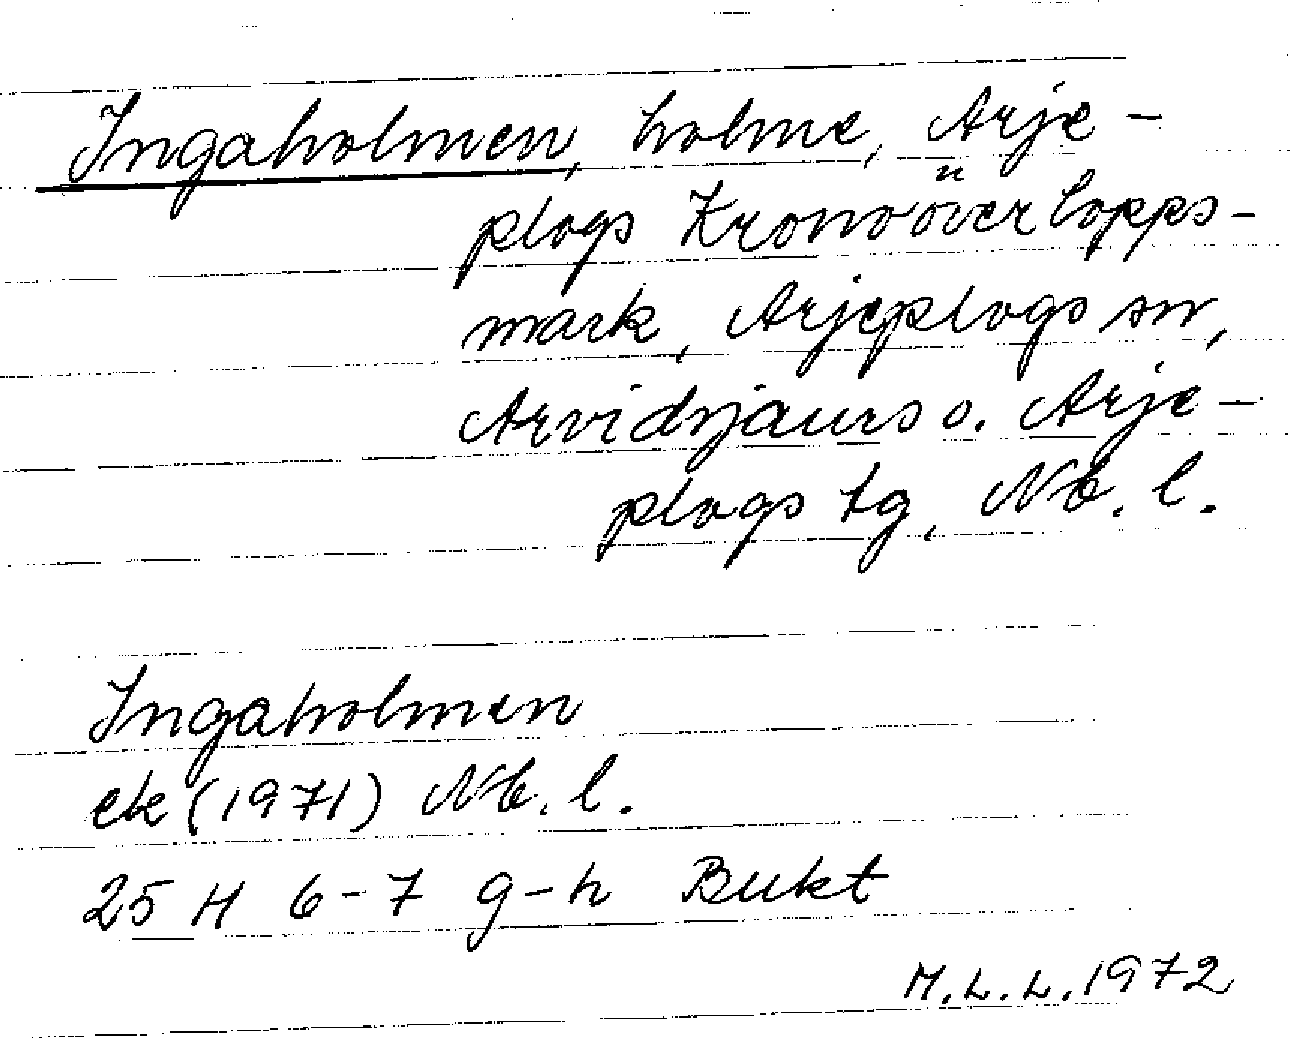 Ingaholmen, holme, Arje-
plogs Kronoöverlopps-
mark, Arjeplogs sn,
Arvidsjaurs o. Arje-
plogs tg, Nb. l.
Ingaholmen
ek (1971) Nb. l.
25 H 6-7 g-h Bukt
M.L.L. 1972